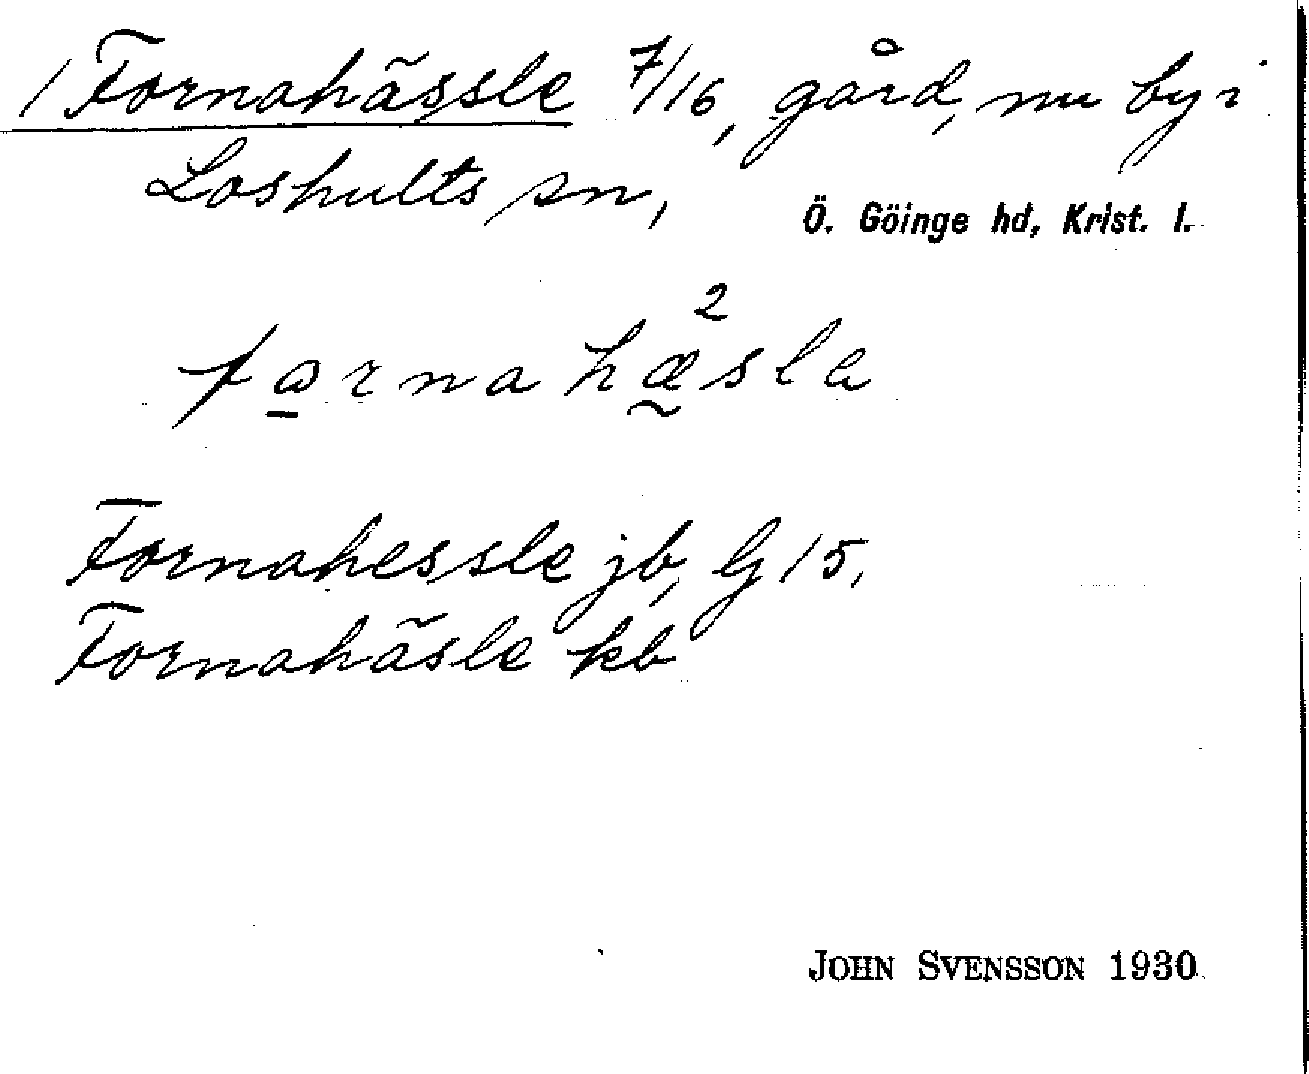 1 Fornahässle 7/16, gård, nu by i
Loshults sn,
Ö. Göinge hd, Krist. l.
2
farnahæsla
Fornahessle jb, Gj 15,
Fornahäsle kb
JOHN SVENSSON 1930